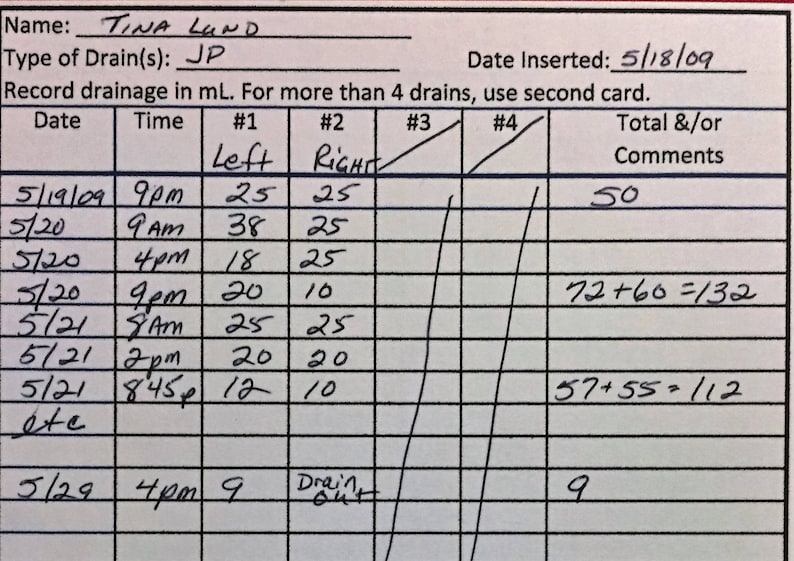 Name: TINA LUND
Type of Drain(s): JP Date Inserted: 5/18/09
Record drainage in mL. For more than 4 drains, use second card.
Date Time #1 #2 #3 #4 Total &/or
Left RiGHT Comments
5/19/09 9pm 25 25 50
5/20 9Am 38 25
5/20 4pm 18 25
5/20 9pm 20 10 72+60=132
5/21 8Am 25 25
5/21 2pm 20 20
5/21 8:45p 12 10 57+55=112
etc
5/29 4pm 9 Drain out 9